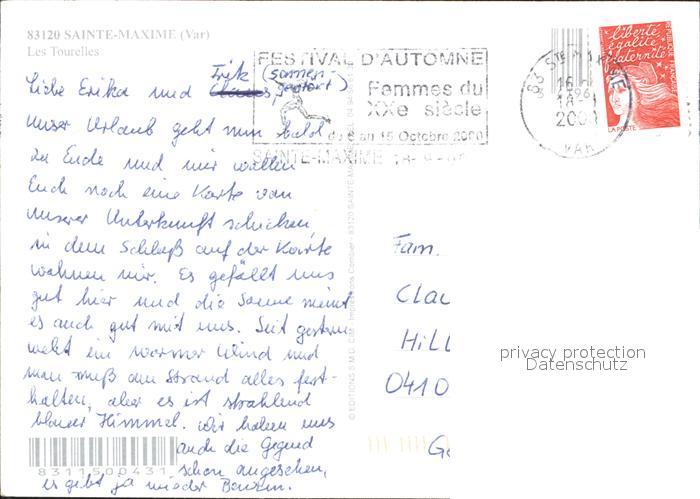 83120 SAINTE-MAXIME (Var)
Les Tourelles
FESTIVAL D'AUTOMNE
Femmes du
XXe siècle
du 6 au 15 Octobre 2000
SAINTE-MAXIME 18-9-
83 STE-MAXIME
18-9
2000
VAR
liberté
égalité
fraternité
REPUBLIQUE FRANÇAISE
LA POSTE
Liebe Erika und Erik (samen-
gestört),
unser Urlaub geht nun bald
zu Ende und wir wollen
Euch noch eine Karte von
unserer Unterkunft schicken,
in dem Schloß auf der Karte
wohnen wir. Es gefällt uns
gut hier und die Sonne meint
es auch gut mit uns. Seit gestern
weht ein warmer Wind und
man muß am Strand alles fest-
halten, aber es ist strahlend
blauer Himmel. Wir haben uns
auch die Gegend
schon angesehen,
es gibt ja wieder Benzin.
8311500431
© EDITIONS S.M.D.
83120 SAINTE-MAXIME
Fam.
Clau
Hill
0410
G
privacy protection
Datenschutz